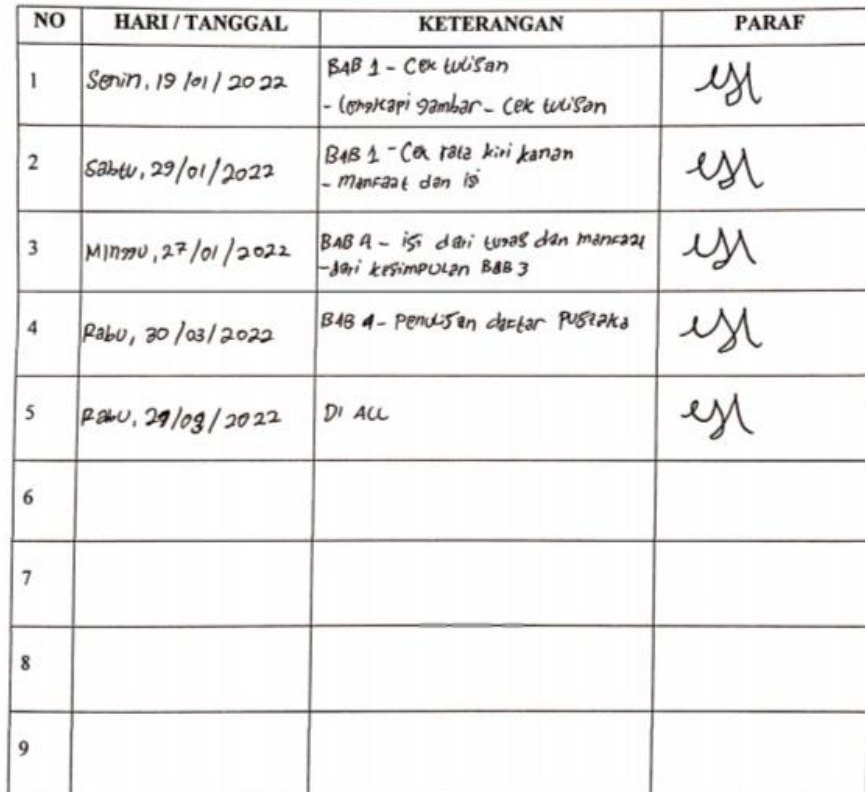 NO HARI / TANGGAL KETERANGAN PARAF
1 Senin, 19/01/2022 BAB 1 - Cek tulisan
- lengkapi gambar - Cek tulisan
2 Sabtu, 29/01/2022 BAB 1 - Cek rata kiri kanan
- Manfaat dan isi
3 Minggu, 27/01/2022 BAB 4 - isi dari tugas dan manfaat
- dari kesimpulan BAB 3
4 Rabu, 30/03/2022 BAB 4 - Penulisan daftar Pustaka
5 Rabu, /2022 DI ACC
6
7
8
9